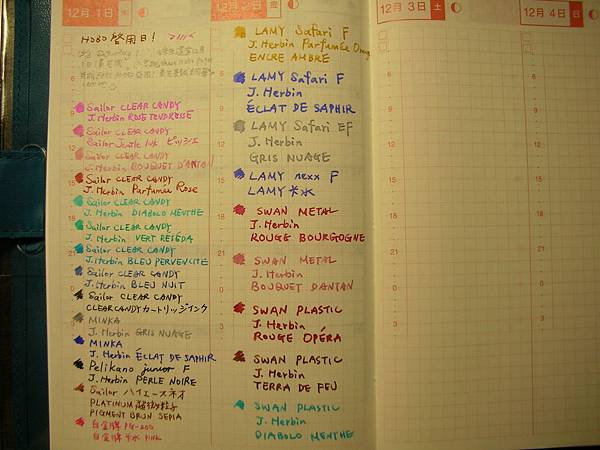 12月 1日 木
HOBO 啓用日!
6
9
12
15
18
21
0
3
Sailor CLEAR CANDY
J. Herbin ROSE TENDRESSE
Sailor CLEAR CANDY
Sailor Jentle Ink ピッシェ
Sailor CLEAR CANDY
J. Herbin BOUQUET D'ANTAN
Sailor CLEAR CANDY
J. Herbin Parfumée Rose
Sailor CLEAR CANDY
J. Herbin DIABOLO MENTHE
Sailor CLEAR CANDY
J. Herbin VERT RÉSÉDA
Sailor CLEAR CANDY
J. Herbin BLEU PERVENCHE
Sailor CLEAR CANDY
J. Herbin BLEU NUIT
Sailor CLEAR CANDY
CLEAR CANDY カートリッジインク
MINKA
J. Herbin GRIS NUAGE
MINKA
J. Herbin ÉCLAT DE SAPHIR
Pelikano junior F
J. Herbin PERLE NOIRE
Sailor ハイエースネオ
PLATINUM 超微粒子
PIGMENT BRUN SEPIA
白金牌 PG-200
白金牌 卡水 PINK
12月 2日 金
LAMY Safari F
J. Herbin Parfumée Orang
ENCRE AMBRE
LAMY Safari F
J. Herbin
ÉCLAT DE SAPHIR
LAMY Safari EF
J. Herbin
GRIS NUAGE
LAMY nexx F
LAMY 卡水
SWAN METAL
J. Herbin
ROUGE BOURGOGNE
SWAN METAL
J. Herbin
BOUQUET D'ANTAN
SWAN PLASTIC
J. Herbin
ROUGE OPÉRA
SWAN PLASTIC
J. Herbin
TERRA DE FEU
SWAN PLASTIC
J. Herbin
DIABOLO MENTHE
12月 3日 土
6
9
12
15
18
21
0
3
12月 4日 日
6
9
12
15
18
21
0
3